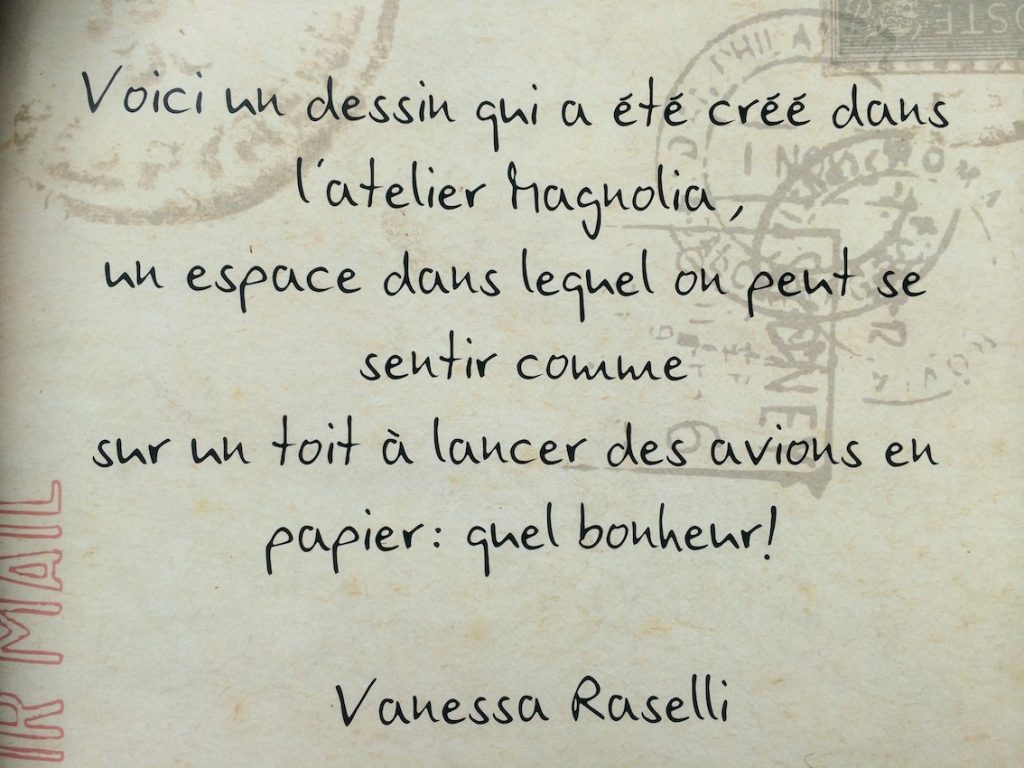 Voici un dessin qui a été créé dans
l'atelier Magnolia,
un espace dans lequel on peut se
sentir comme
sur un toit à lancer des avions en
papier: quel bonheur!
Vanessa Raselli
IR MAIL
OSTE